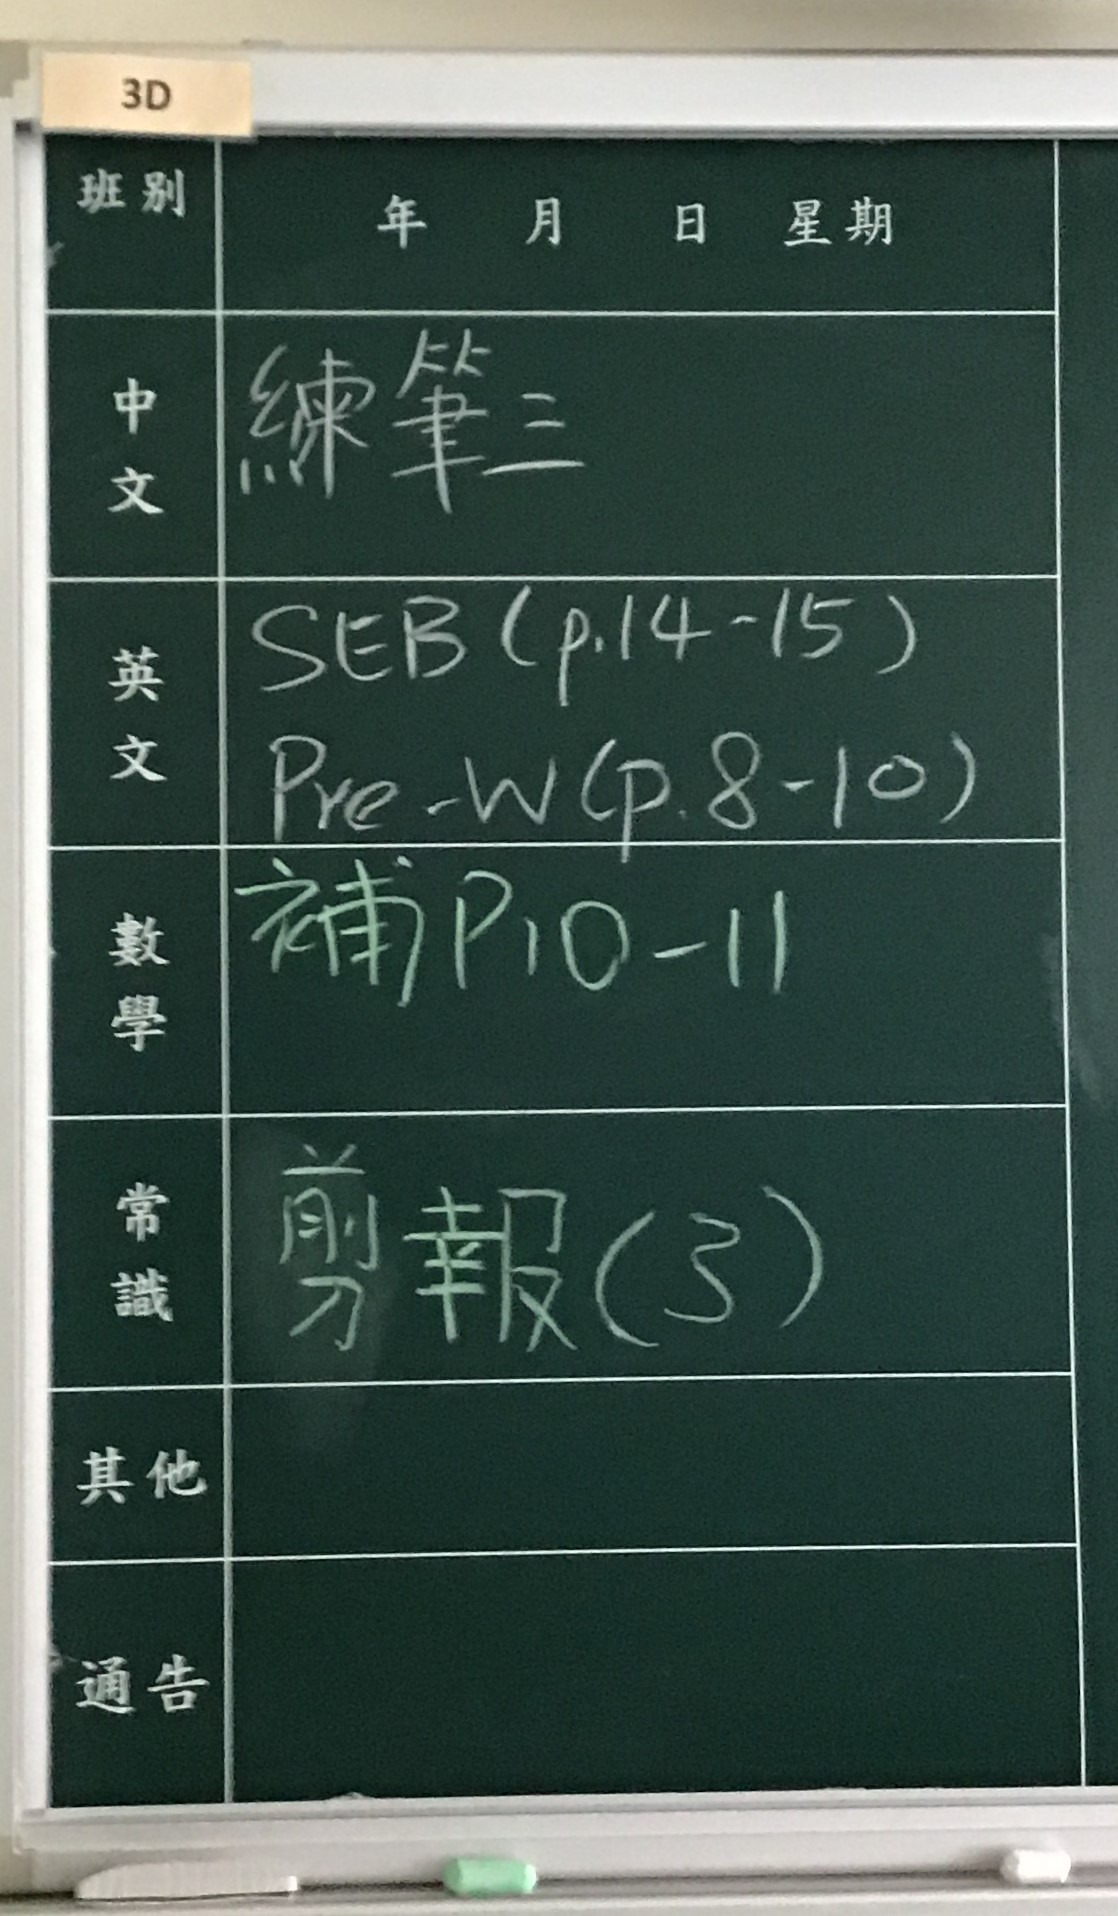 3D
班別
年 月 日 星期
中文
練筆三
英文
SEB (p.14-15)
Pre-W (p.8-10)
數學
補 P10-11
常識
剪報(3)
其他
通告